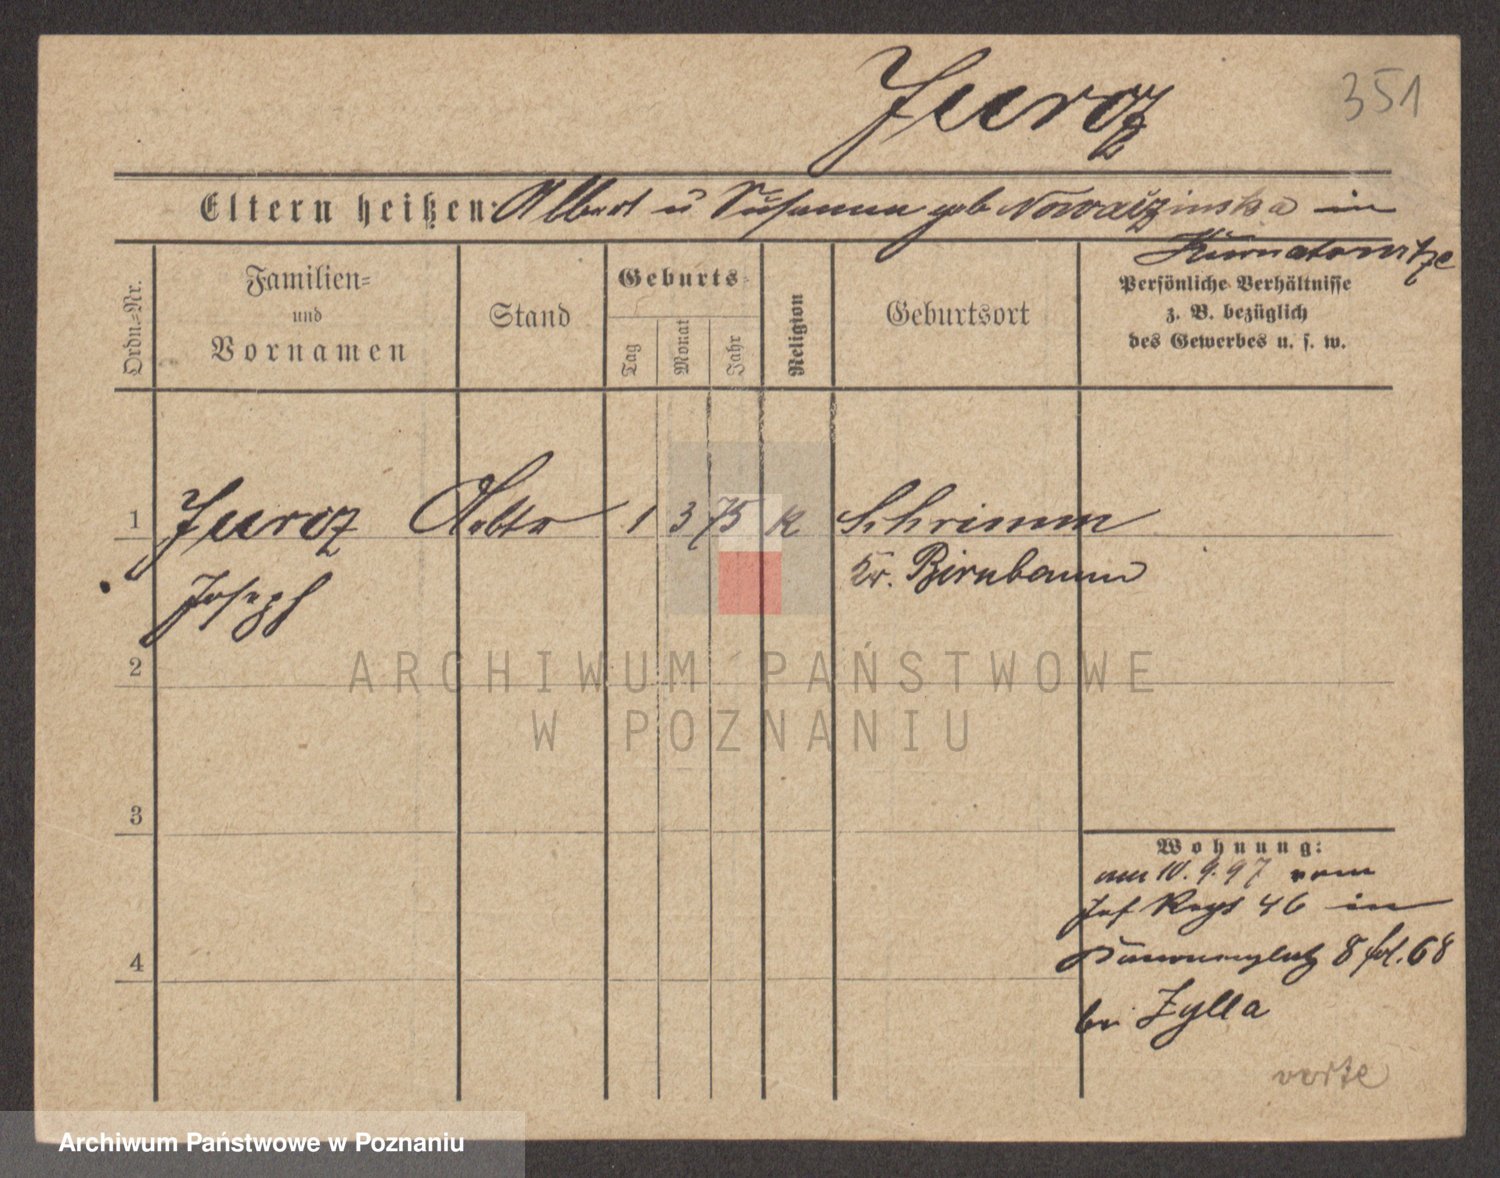 351
Juroz
Eltern heißen: Albert u Susanna geb Nowaizinska in
Kurnatowitze
Ordn.-Nr.
Familien-
und
Vornamen
Stand
Geburts-
Tag
Monat
Jahr
Religion
Geburtsort
Persönliche Verhältnisse
z. B. bezüglich
des Gewerbes u. s. w.
1 Juroz Arbtr 1 3 75 K Schrimm
Joseph Kr. Birnbaum
2
3
4
Wohnung:
am 10.9.97 vom
Inf Regt 46 in
8 fol. 68
bei Zylla
ARCHIWUM PAŃSTWOWE
W POZNANIU
Archiwum Państwowe w Poznaniu